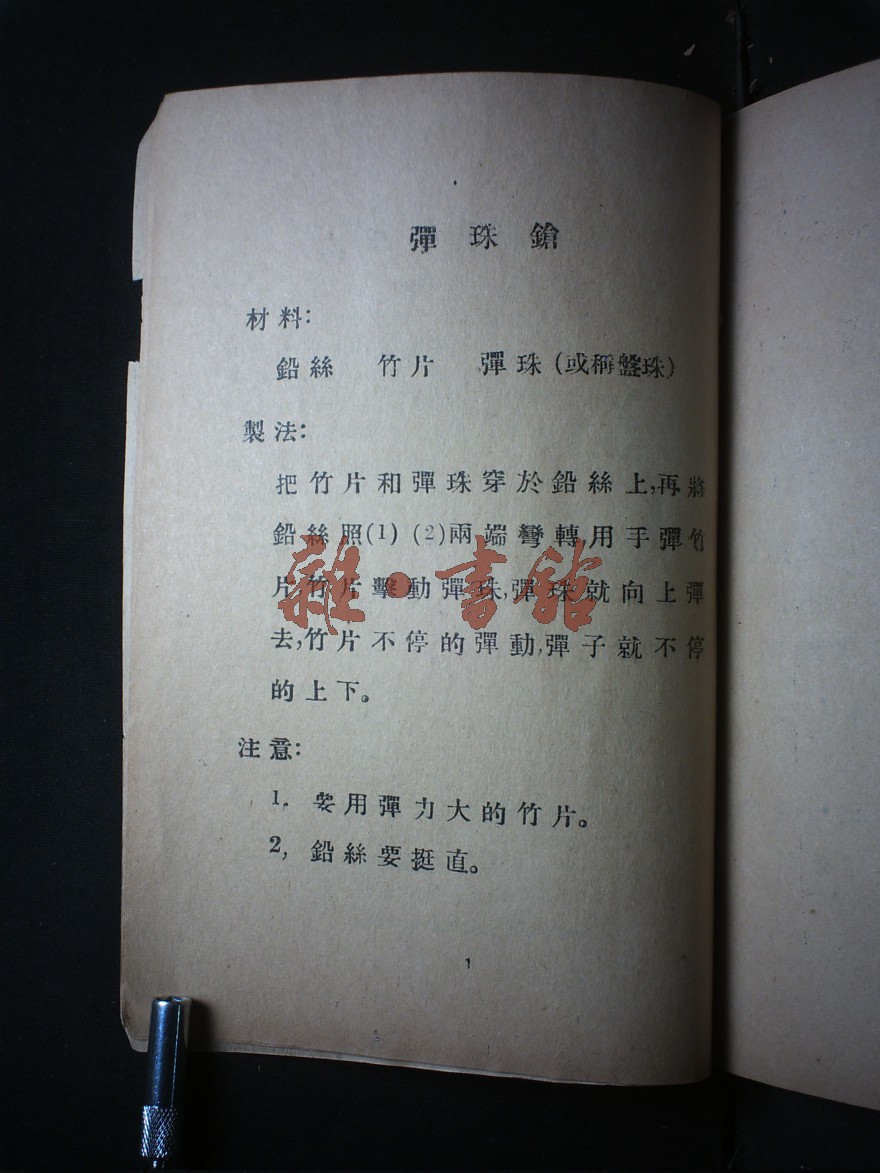 彈珠鎗
材料:
鉛絲 竹片 彈珠(或稱盤珠)
製法:
把竹片和彈珠穿於鉛絲上,再將
鉛絲照(1) (2)兩端彎轉,用手彈竹
片,竹片擊動彈珠,彈珠就向上彈
去,竹片不停的彈動,彈子就不停
的上下。
雜·書館
注意:
1. 要用彈力大的竹片。
2, 鉛絲要挺直。
1